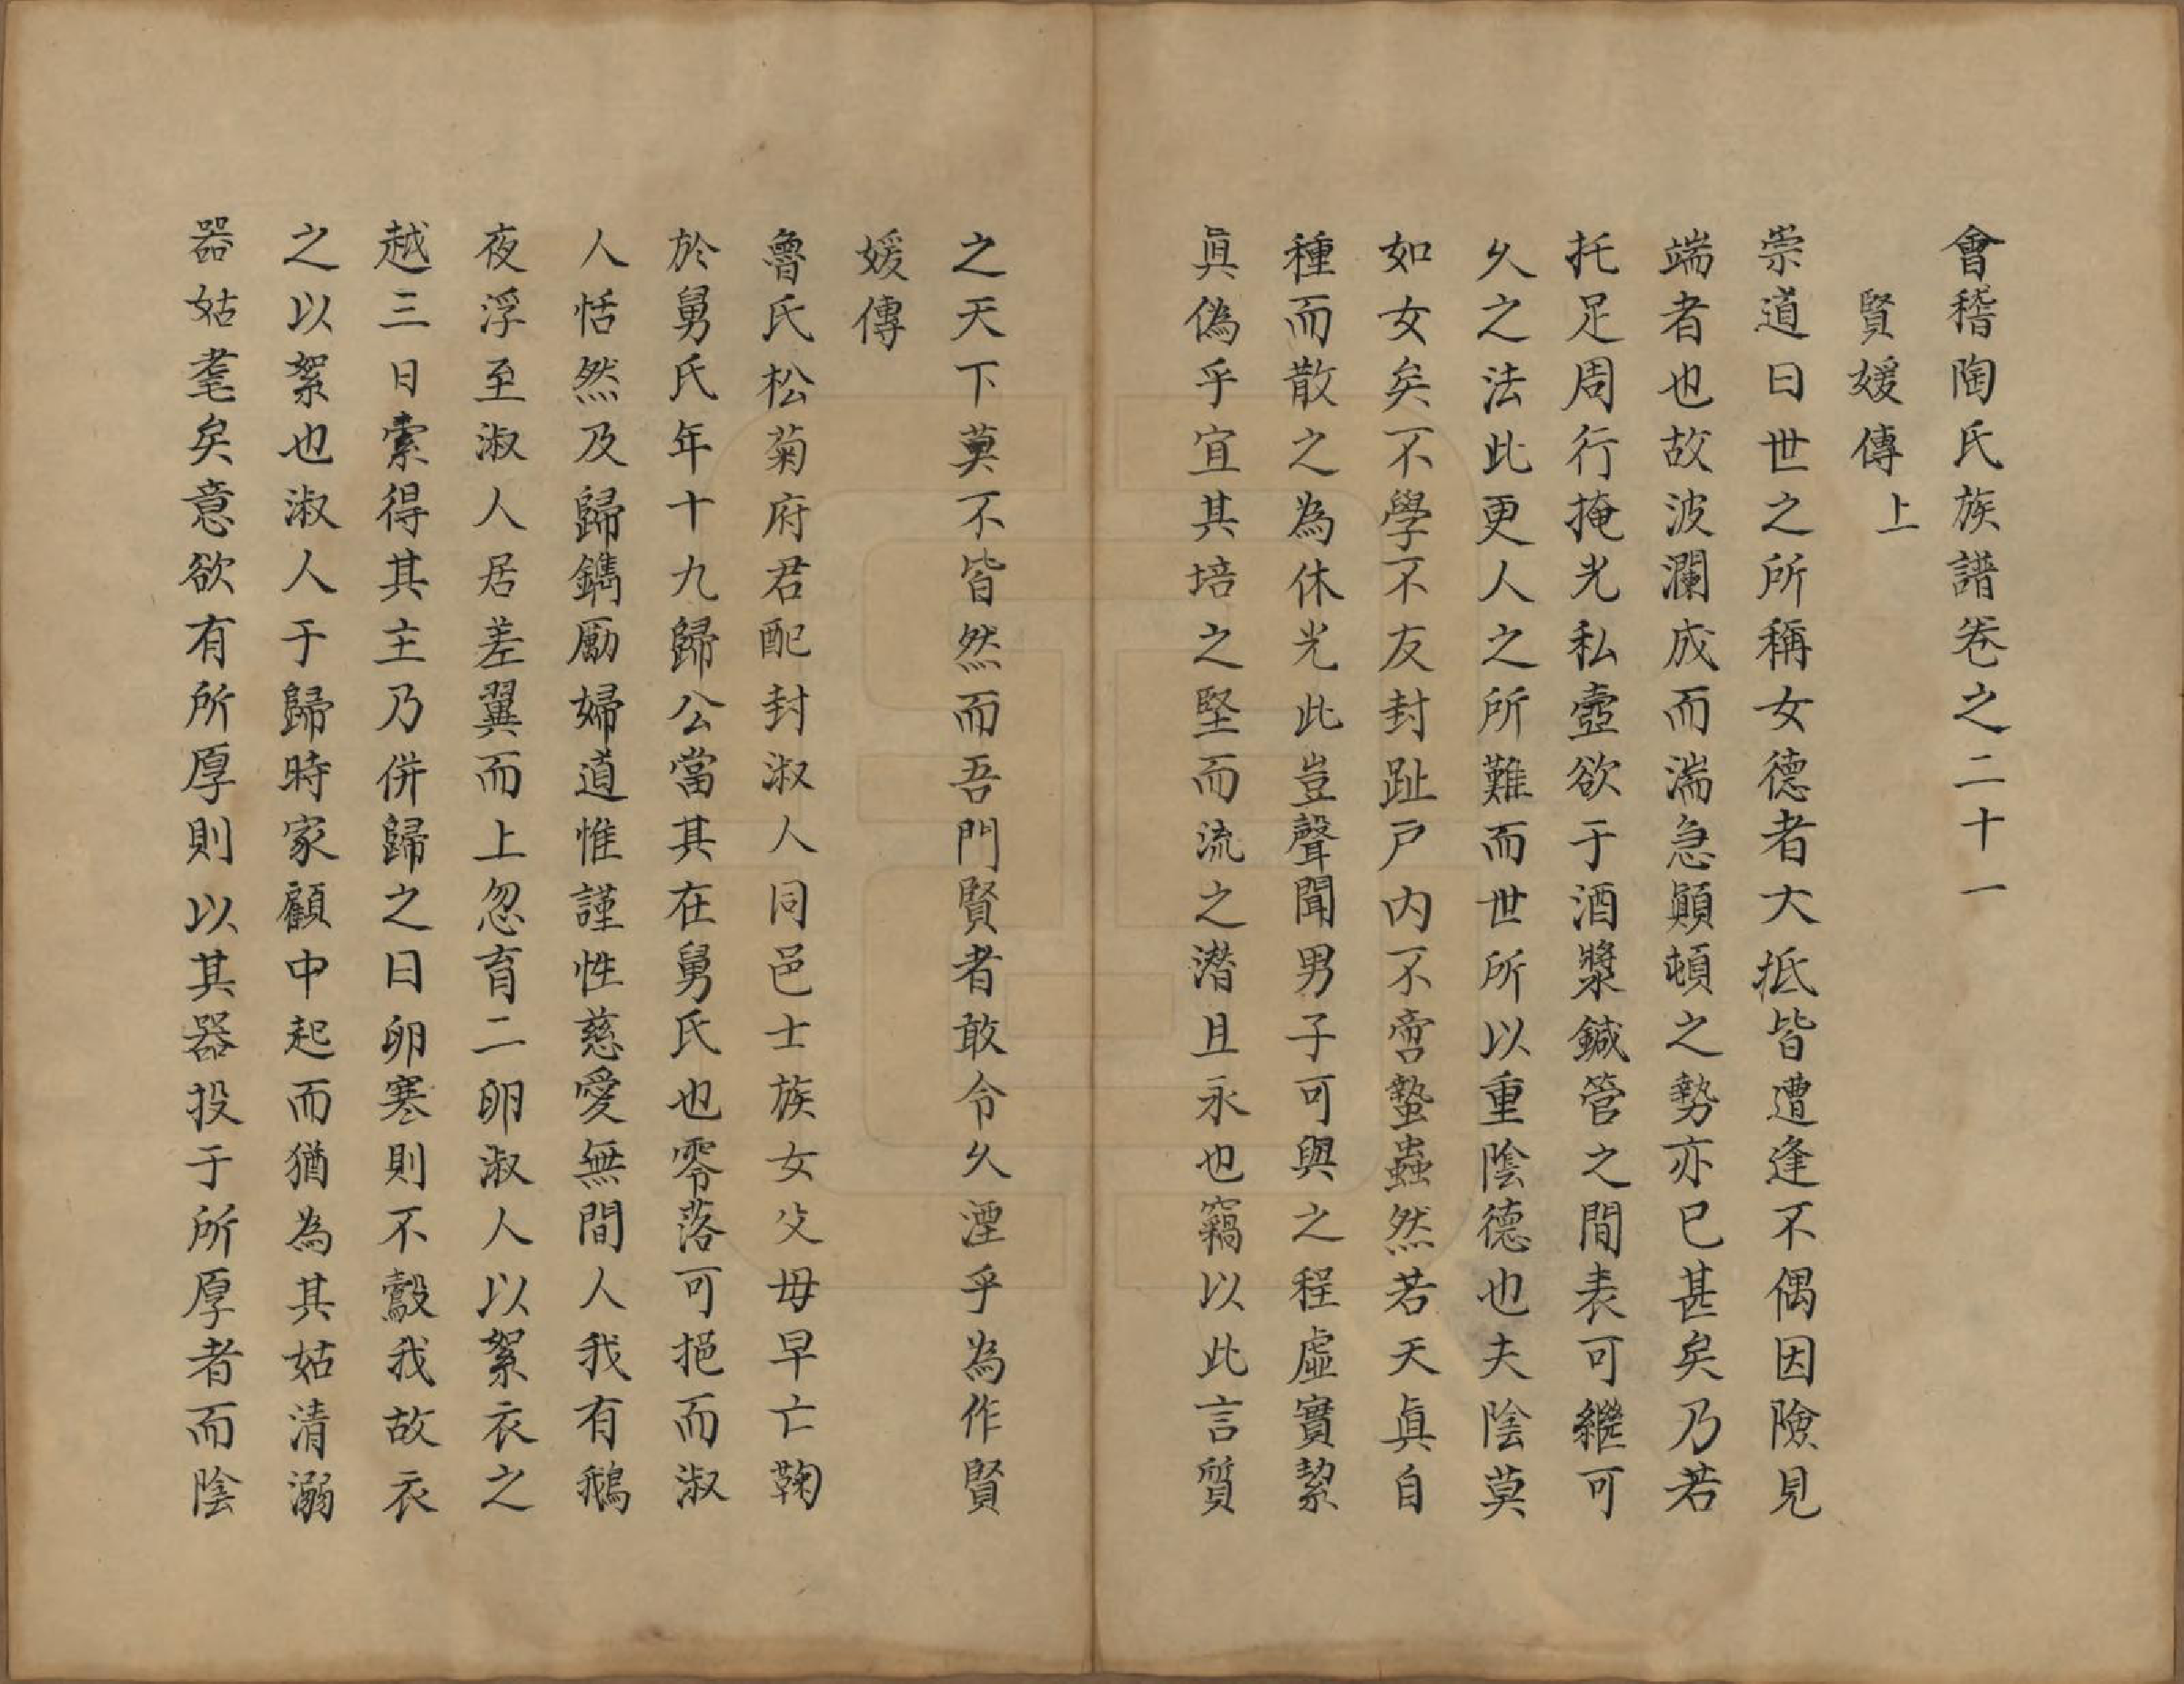 會稽陶氏族譜卷之二十一
賢媛傳上
崇道曰世之所稱女德者大抵皆遭逢不偶因險見
端者也故波瀾成而湍急顛頓之勢亦已甚矣乃若
托足周行掩光私壼欲于酒漿鍼管之間表可繼可
久之法此更人之所難而世所以重陰德也夫陰莫
如女矣不學不友封趾戶内不啻蟄蟲然若天眞自
種而散之為休光此豈聲聞男子可與之程虛實絜
眞偽乎宜其培之堅而流之潛且永也竊以此言質
之天下莫不皆然而吾門賢者敢令久湮乎為作賢
媛傳
魯氏松菊府君配封淑人同邑士族女父母早亡鞠
於舅氏年十九歸公當其在舅氏也零落可挹而淑
人恬然及歸鐫勵婦道惟謹性慈愛無間人我有鵝
夜浮至淑人居差翼而上忽育二卵淑人以絮衣之
越三日索得其主乃併歸之曰卵寒則不鷇我故衣
之以絮也淑人于歸時家顧中起而猶為其姑清溺
器姑耄矣意欲有所厚則以其器投于所厚者而陰